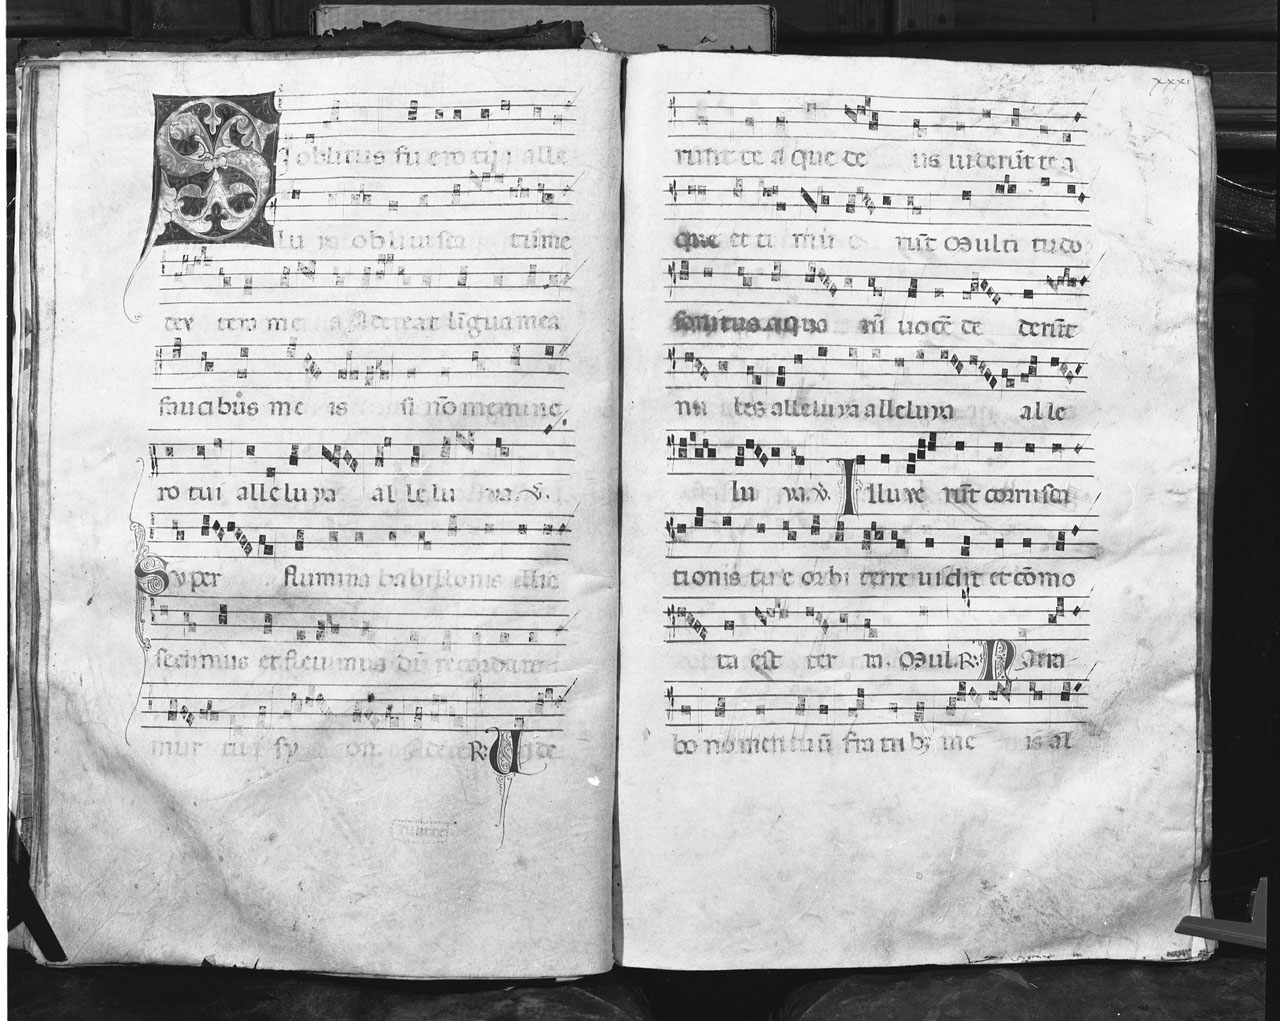 Si oblitus fuero tui alle
lu ya obliuiscat tui me
dex tera me a Adereat lĩgua mea
faucibus me is si nõ memine
ro tui alleluya al le lu ya. V.
Super flumina babillonis illic
sedimus et fleuimus dũ recordare
mur tui sy on. R. Uide
xxxi
runt te aque de us uiderũt te a
que et ti mu e rũt Multi tudo
sonitus aqua rũ uocẽ de derũt
nu bes alleluya alleluya alle
lu ya. V. Illuxe rũt corusca
tiones tu e orbi terre uidit et cõmo
ta est ter ra. Mul. R. Narra
bo nomen tuũ fratrib3 me is al